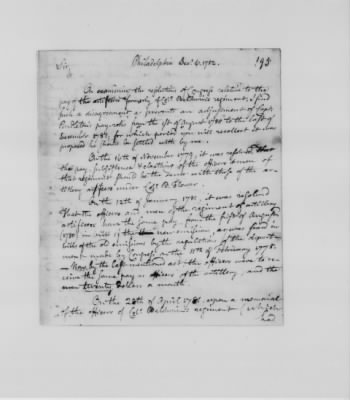 Philadelphia Decr. 4. 1782.
195
Sir,
On examining the resolutions of Congress relative to the
pay of the artificers formerly of Col. Baldwin's regiment, I find
such a disagreement as prevents an adjustment of Capt.
pay-rolls from the 1st of August 1780 to the last of
December 1781, for which period you will recollect it was
proposed he should be settled with by me.
On the 16th of November 1779, it was resolved that
the pay, subsistence & of the officers & men of
that regiment should be the same with those of the ar-
tillery artificers under Col. B. Flower.
On the 12th of January 1781, it was resolved
that the officers and men of the regiment of artillery
artificers have the same pay, from the first of August
1780, in bills of the new emission, as was fixed in
bills of the old emissions by the regulations of the depart-
ment made by Congress on the 11th of February 1778.
- Now, by the last mentioned act the officers were to re-
ceive the same pay as officers of the artillery, and the
men twenty dollars a month.
On the 28th of April 1781, upon a memorial
of the officers of Col. Baldwin's regiment (which
had